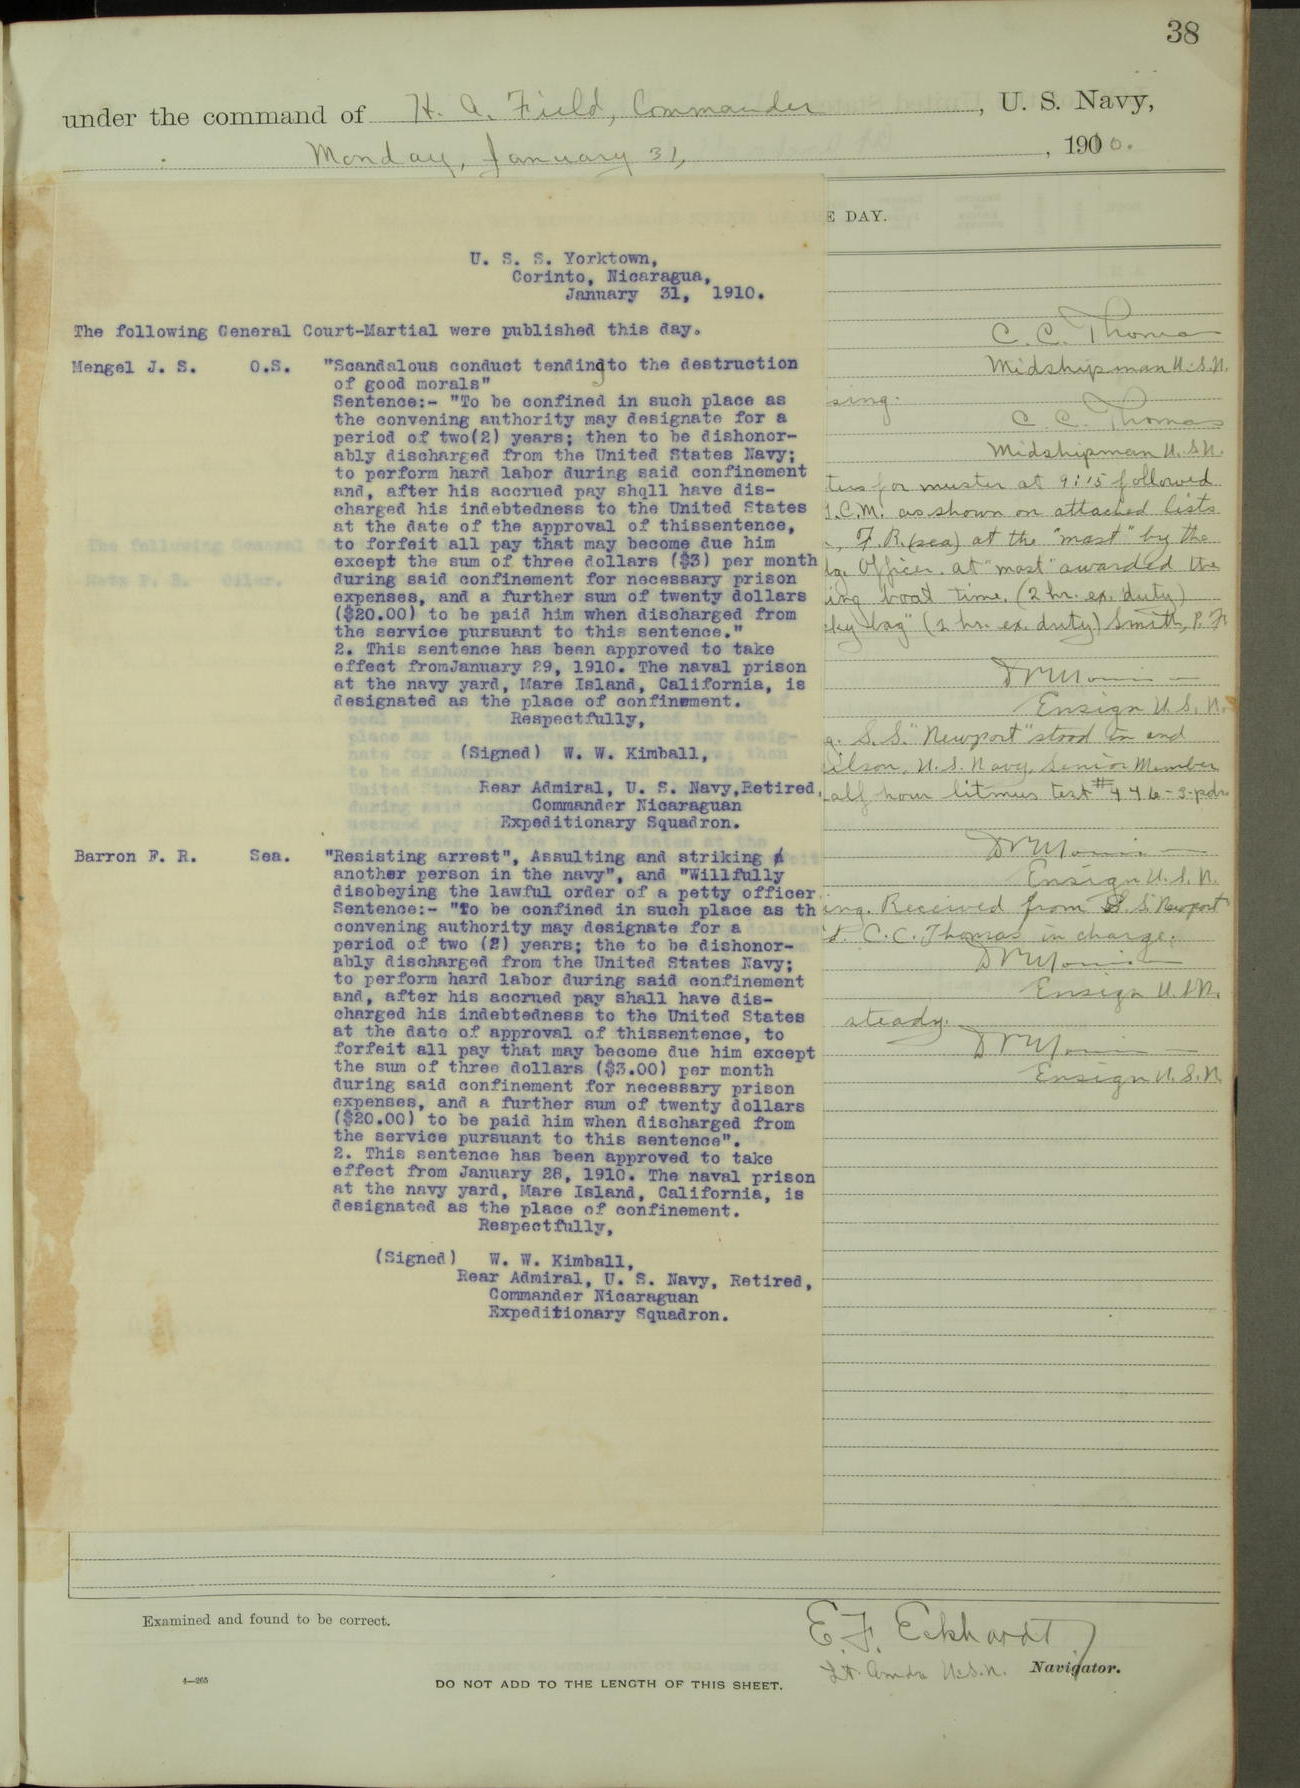 38
under the command of H. A. Field, Commander, U. S. Navy,
Monday, January 31, 1910.
E DAY.
U. S. S. Yorktown,
Corinto, Nicaragua,
January 31, 1910.
The following General Court-Martial were published this day.
Mengel J. S. O.S. "Scandalous conduct tending to the destruction
of good morals"
Sentence:- "To be confined in such place as
the convening authority may designate for a
period of two(2) years; then to be dishonor-
ably discharged from the United States Navy;
to perform hard labor during said confinement
and, after his accrued pay shqll have dis-
charged his indebtedness to the United States
at the date of the approval of thissentence,
to forfeit all pay that may become due him
except the sum of three dollars ($3) per month
during said confinement for necessary prison
expenses, and a further sum of twenty dollars
($20.00) to be paid him when discharged from
the service pursuant to this sentence."
2. This sentence has been approved to take
effect fromJanuary 29, 1910. The naval prison
at the navy yard, Mare Island, California, is
designated as the place of confinement.
Respectfully,
(Signed) W. W. Kimball,
Rear Admiral, U. S. Navy,Retired,
Commander Nicaraguan
Expeditionary Squadron.
Barron F. R. Sea. "Resisting arrest", Assulting and striking
another person in the navy", and "Willfully
disobeying the lawful order of a petty officer
Sentence:- "To be confined in such place as th
convening authority may designate for a
period of two (2) years; the to be dishonor-
ably discharged from the United States Navy;
to perform hard labor during said confinement
and, after his accrued pay shall have dis-
charged his indebtedness to the United States
at the date of approval of thissentence, to
forfeit all pay that may become due him except
the sum of three dollars ($3.00) per month
during said confinement for necessary prison
expenses, and a further sum of twenty dollars
($20.00) to be paid him when discharged from
the service pursuant to this sentence".
2. This sentence has been approved to take
effect from January 28, 1910. The naval prison
at the navy yard, Mare Island, California, is
designated as the place of confinement.
Respectfully,
(Signed) W. W. Kimball,
Rear Admiral, U. S. Navy, Retired,
Commander Nicaraguan
Expeditionary Squadron.
C. C. Thomas
Midshipman U.S.N.
sing.
C. C. Thomas
Midshipman U.S.N.
ters for muster at 9:15 followed
.C.M. as shown on attached lists
, F.R. (sea) at the "mast" by the
Officer. at "mast" awarded the
ing boat time. (2 hr. ex. duty)
ky bag" (2 hr. ex. duty) Smith, P. F.
Ensign U.S.N.
S.S. "Newport" stood in and
ilson, U.S. Navy, Senior Member
alf hour litmus test #446-3-pdr
Ensign U.S.N.
ing. Received from S.S. Newport
C.C. Thomas in charge.
Ensign U.S.N.
steady.
Ensign U.S.N.
Examined and found to be correct.
E. F. Eckhardt
U.S.N. Navigator.
4—265
DO NOT ADD TO THE LENGTH OF THIS SHEET.